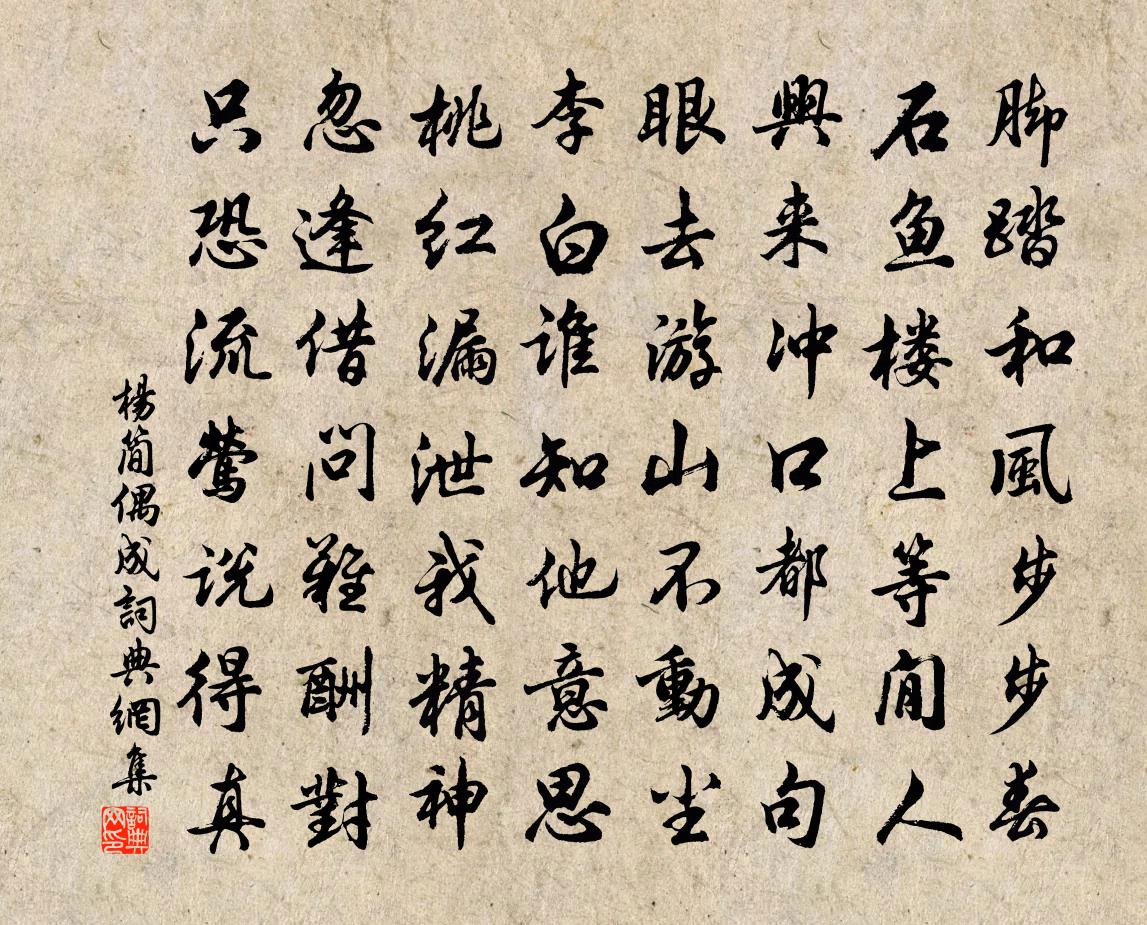 脚踏和風步步春
石鱼楼上等闲人
興来冲口都成句
眼去游山不動尘
李白谁知他意思
桃红漏泄我精神
忽逢借问難酬對
只恐流莺说得真
楊简偶成詞典網集
詞典网印